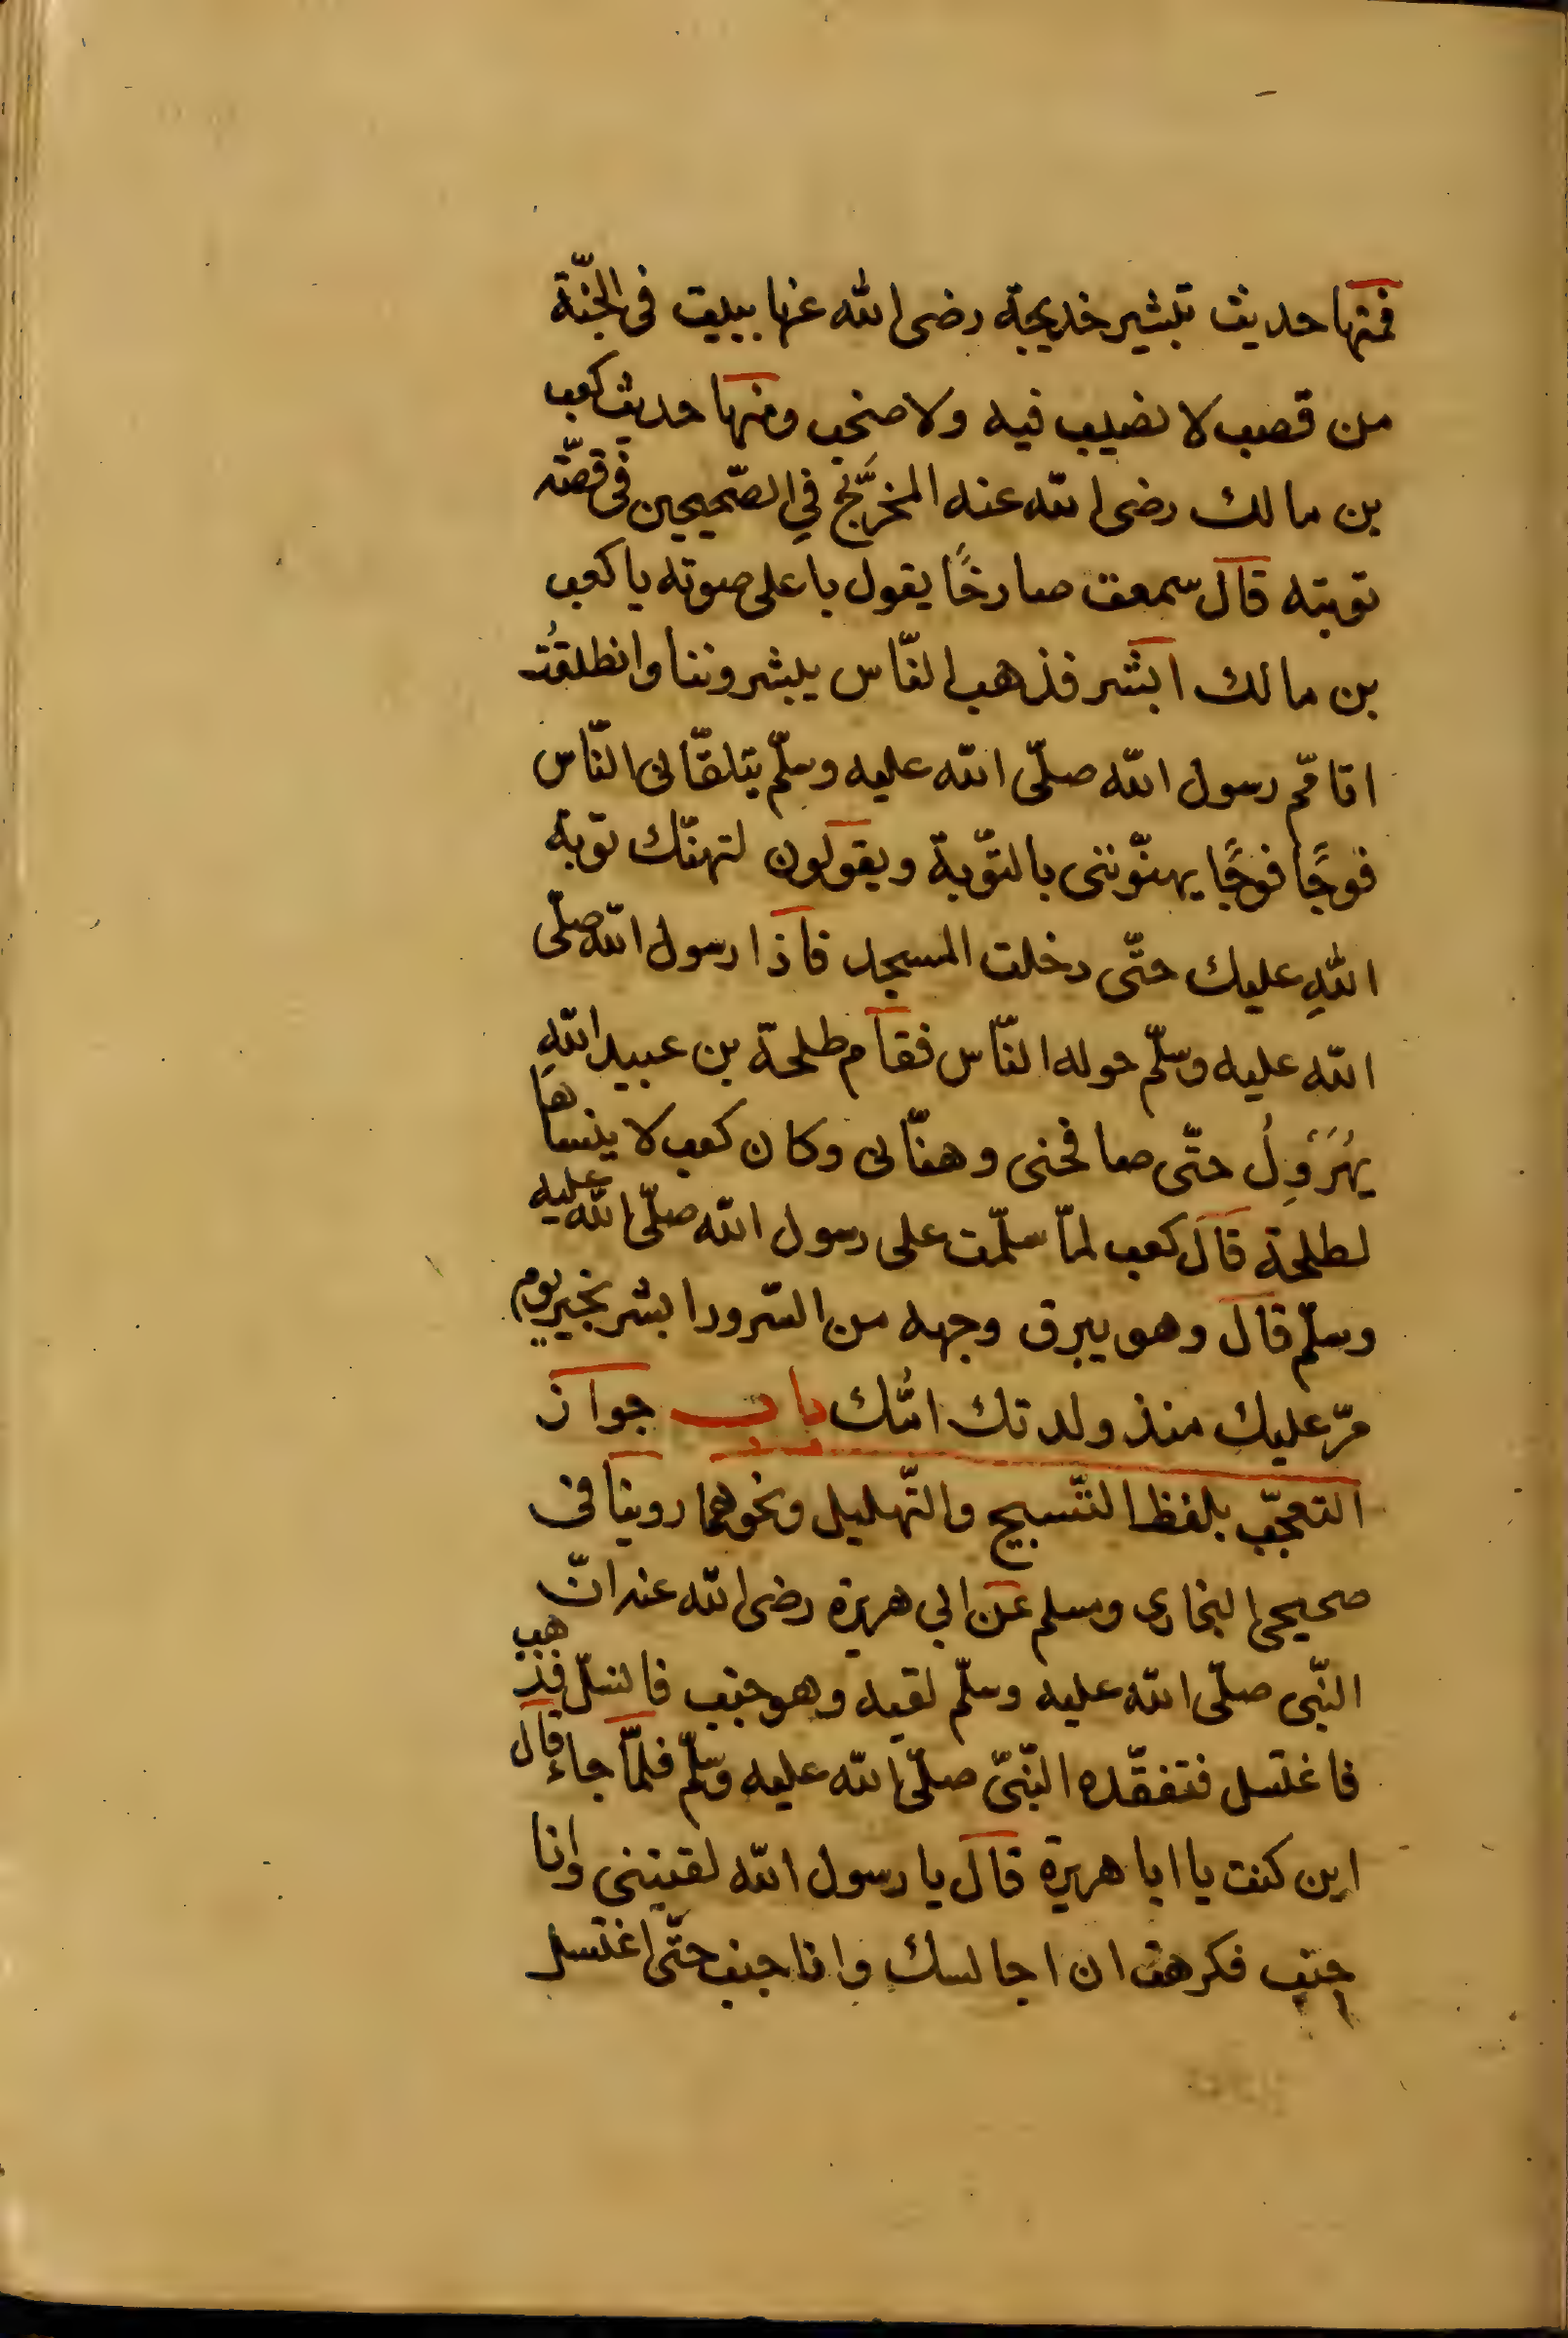 فمنها حديث تبشير خديجة رضى الله عنها ببيت فى الجنّة
من قصب لا نصيب فيه ولا صخب ومنها حديث كعب
بن مالك رضى الله عنه المخرَّج فِي الصّحيحين فى قصّة
توبته قال سمعت صارخًا يقول باعلى صوته يا كعب
بن مالك ابشر فذهب النّاس يبشروننا وانطلقتُ
اتامّم رسول الله صلّى الله عليه وسلّم يتلقّانى النّاس
فوجًا فوجًا يهنّوننى بالتّوبة ويقولون لتهنّك توبة
اللهِ عليك حتّى دخلت المسجد فاذا رسول الله صلّى
الله عليه وسلّم حوله النّاس فقام طلحة بن عبيد اللهِ
يُهَرَوِلُ حتّى صافحنى وهنّانى وكان كعب لا ينساها
لطلحة قال كعب لمّا سلّمت على رسول الله صلّى الله عليه
وسلّم قال وهو يبرق وجهه من السّرور ابشر بخير يوم
مرّ عليك منذ ولدتك امُّك باب جواز
التعجّب بلفظ التّسبيح والتّهليل ونحوهما روينا فى
صحيحى البخارى ومسلم عن ابى هريرة رضى الله عنه انّ
النّبى صلّى الله عليه وسلّم لقيه وهو جنب فانسلّ فذهب
فاغتسل فتفقّده النّبىّ صلّى الله عليه وسلّم فلمّا جاء قال
اين كنت يا ابا هريرة قال يا رسول الله لقيتنى وانا
جنب فكرهت ان اجالسك وانا جنب حتّى اغتسل